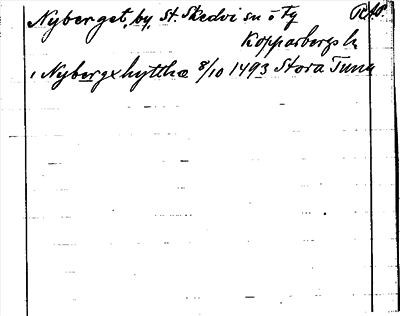 Nyberget, by, St. Skedvi sn o tg RAp.
Kopparbergs l.
1 Nybergxhyttha 8/10 1493 Stora Tuna